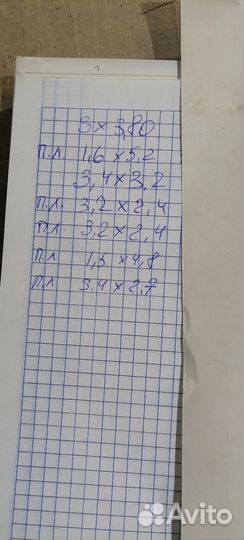 3 х 3,80
П.Л. 1,6 х 5,2
3,4 х 3,2
П.Л. 3,2 х 2,4
П.Л. 3,2 х 2,4
П.Л 1,5 х 4,8
П.Л 3.4 х 2,7
Avito